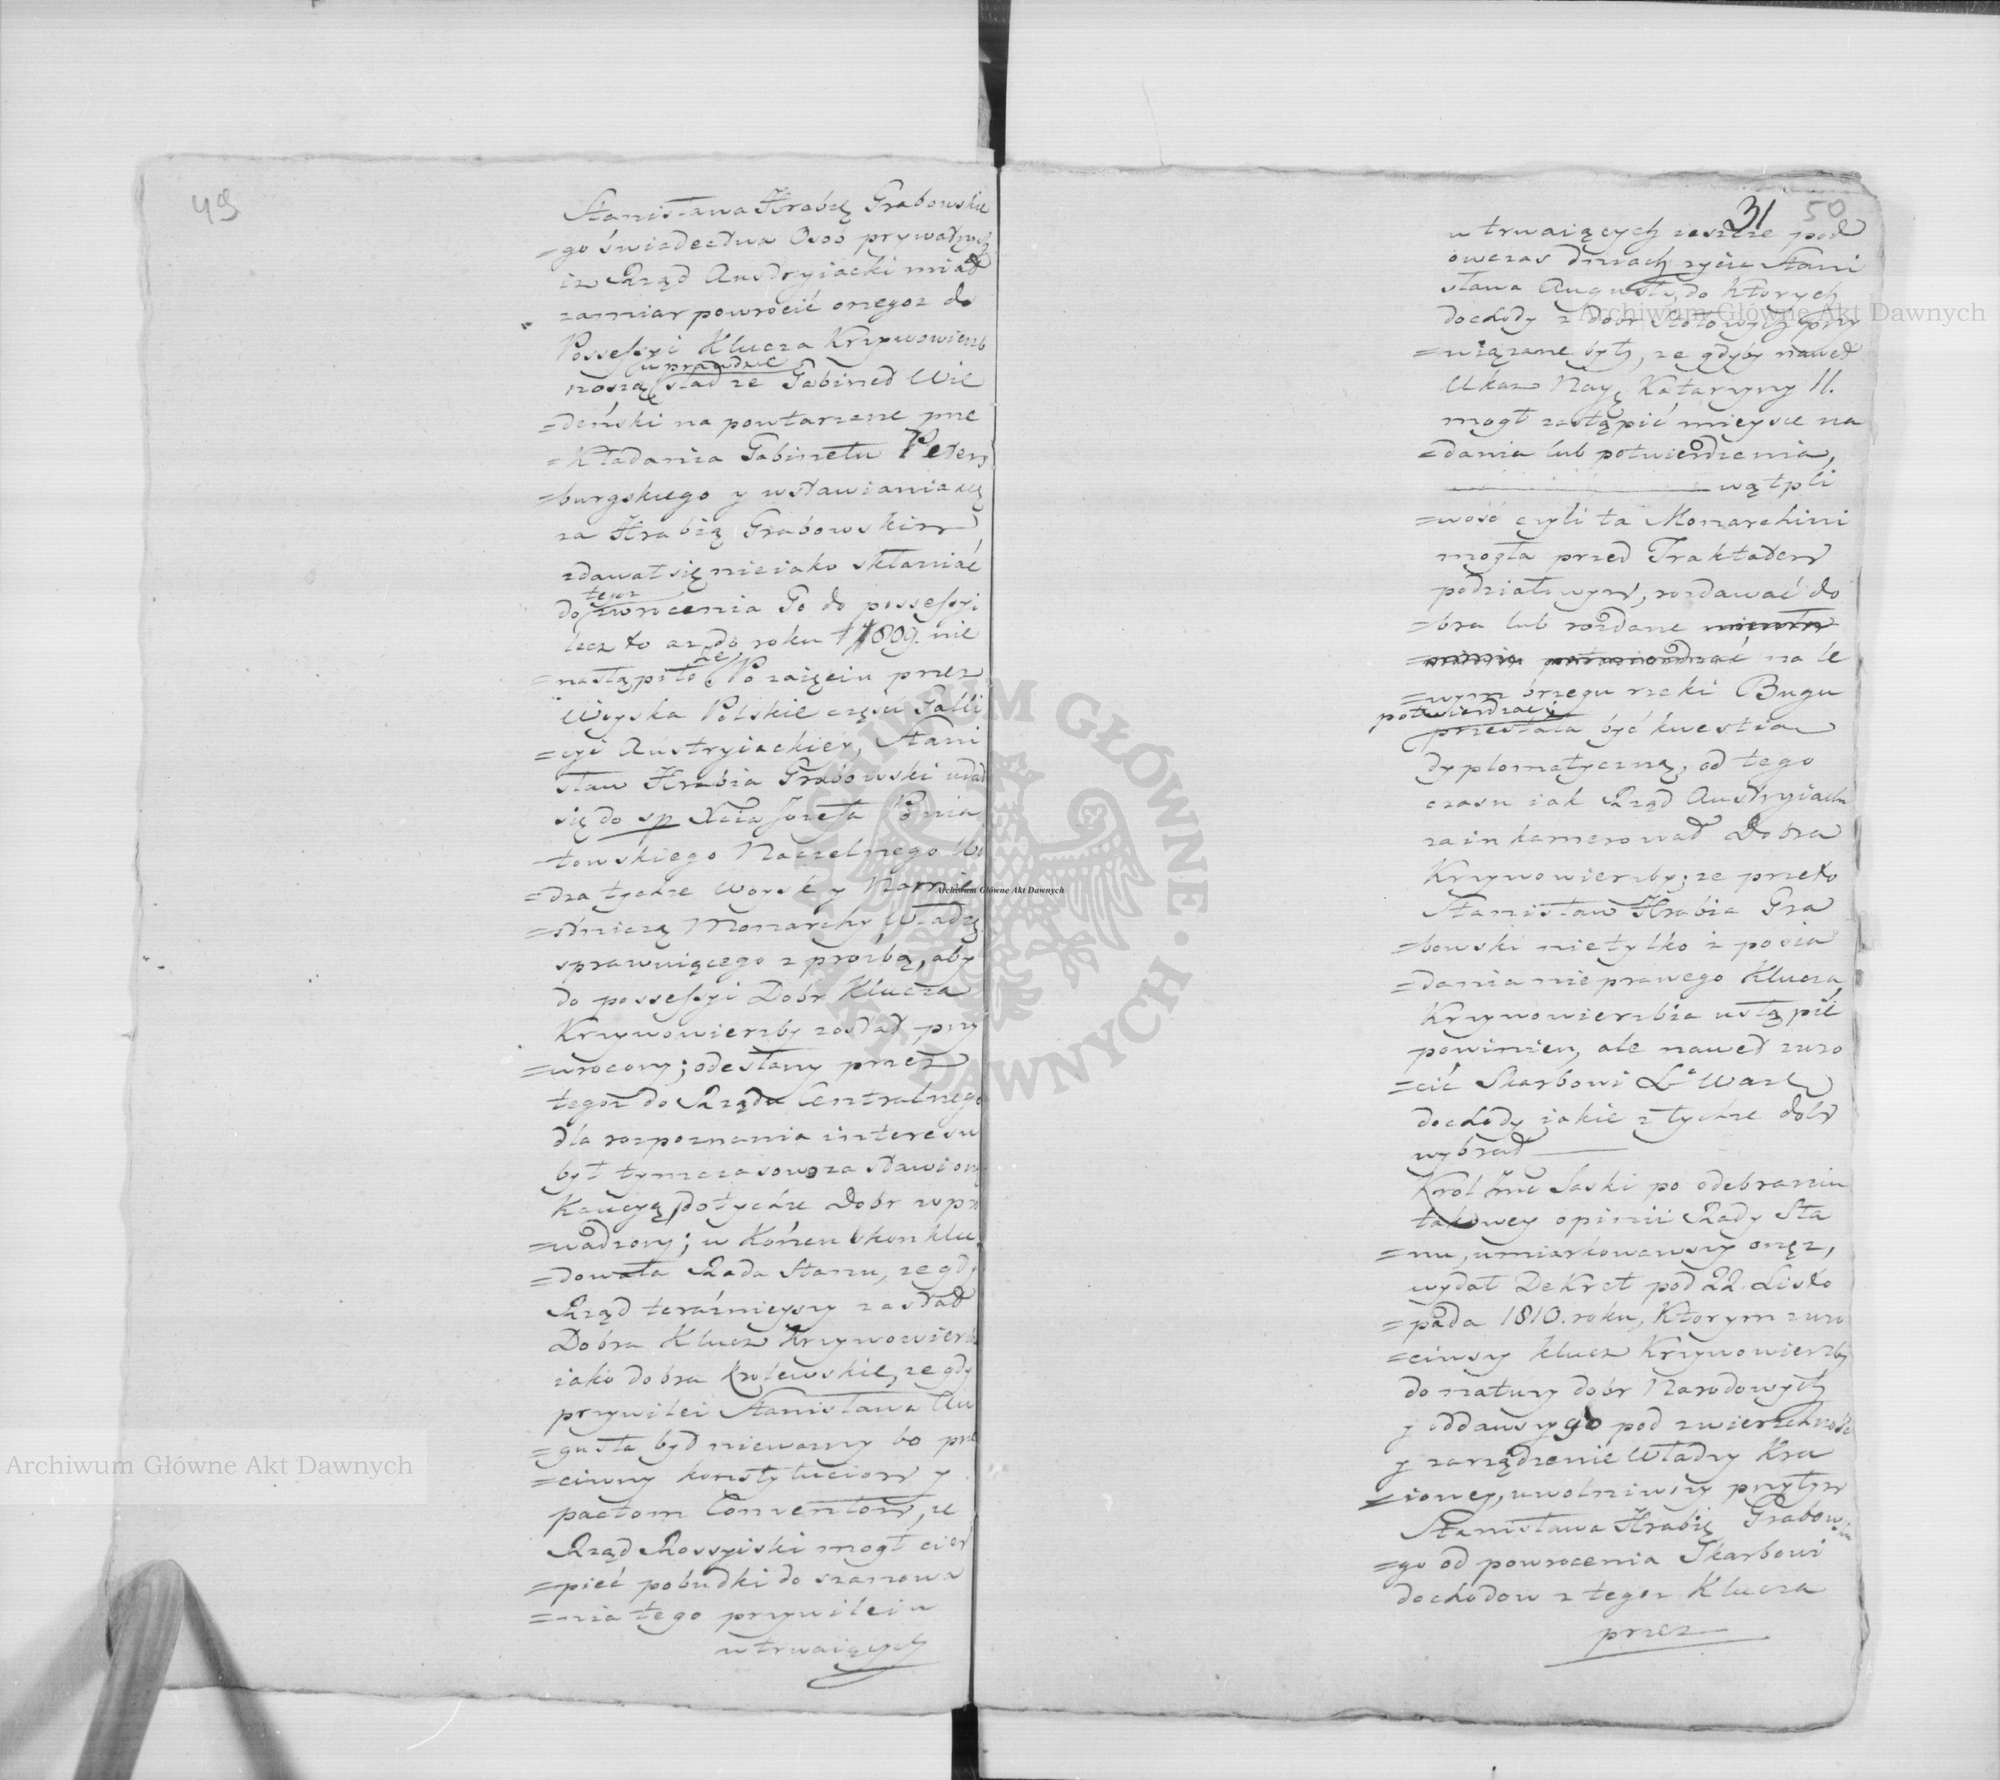 49
Stanisława Hrabię Grabowskie
=go świadectwa Osob prywatnych
iz Rząd Austryiacki miał
zamiar powrócić onegoz do
Possessyi Klucza Krzywowierzb
uprawdzie
noszą ślad ze Gabinet Wie
=deński na powtarzane prze
=kładania Gabinetu Peters
=burgskiego y wstawiania się
za Hrabią Grabowskim
zdawał się nieiako skłaniać
tegoz
do zwrocenia Go do possessyi
lecz to az do roku 1809. nie
nastąpiło, ze Po zaięciu przez
Woyska Polskie części Galli
=cyi Austryiackiey, Stani
sław Hrabia Grabowski udał
się do sp Xcia Jozefa Ponia
=towskiego Naczelnego Wo
=dza tychze Woysk y Namie
=stniczą Monarchy Władzę
sprawuiącego z proźbą, aby
do possessyi Dobr Klucza
Krzywowierzby został przy
=wrocony; odesłany przez
tegoz do Rządu Centralnego
dla rozpoznania interesu
był tymczasowo za stawioną
Kaucyą do tychze Dobr wpro
=wadzony; w Końcu konklu
=dowała Rada Stanu, ze gdy
Rząd teraźnieyszy zastał
Dobra Klucz Krzywowierzb
iako dobra krolewskie, ze gdy
przywilei Stanisława Au
=gusta był niewazny bo prze
=ciwny konstytuciom y
pactom Conventom, ze
Rząd Rossyiski mogł cier
=pieć pobudki do szanowa
=nia tego przywileiu
w trwaiących
31
50
w trwaiących ieszcze pod
owczas dniach zycia Stani
sława Augusta, do ktorych
dochody z dobr stołowych przy
=wiązane były, ze gdyby nawet
Ukaz Nayę Katarzyny II.
mogł zastąpić mieysce na
=dania lub potwierdzenia,
wątpli
=wość czyli ta Monarchini
mogła przed Traktatem
podziałowym, rozdawać do
=bra lub rozdane
na le
=wym brzegu rzeki Bugu
potwierdzać,
przestała być kwestia
dyplomatyczną, od tego
czasu iak Rząd Austryiacki
zainkamerował Dobra
Krzywowierzby; ze przeto
Stanisław Hrabia Gra
=bowski nietylko z posia
=dania nieprawego Klucza
Krzywowierzbia ustąpić
powinien, ale nawet zwro
=cić Skarbowi Xa Warz
dochody iakie z tychze dobr
wybrał
Krol Jmć Saski po odebraniu
takowey opinii Rady Sta
=nu, umiarkowawszy onęz,
wydał Dekret pod 22. Listo
=pada 1810. roku, Ktorym zwro
=ciwszy klucz Krzywowierzby
do natury dobr Narodowych
y oddawszy go pod zwierzchność
y zarządzenie Władzy Kra
=iowey, uwolniwszy przytym
Stanisława Hrabię Grabowskie
=go od powrocenia Skarbowi
dochodow z tegoz Klucza
przez
Archiwum Główne Akt Dawnych
Archiwum Główne Akt Dawnych
Archiwum Główne Akt Dawnych
ARCHIWUM GŁÓWNE · AKT DAWNYCH ·